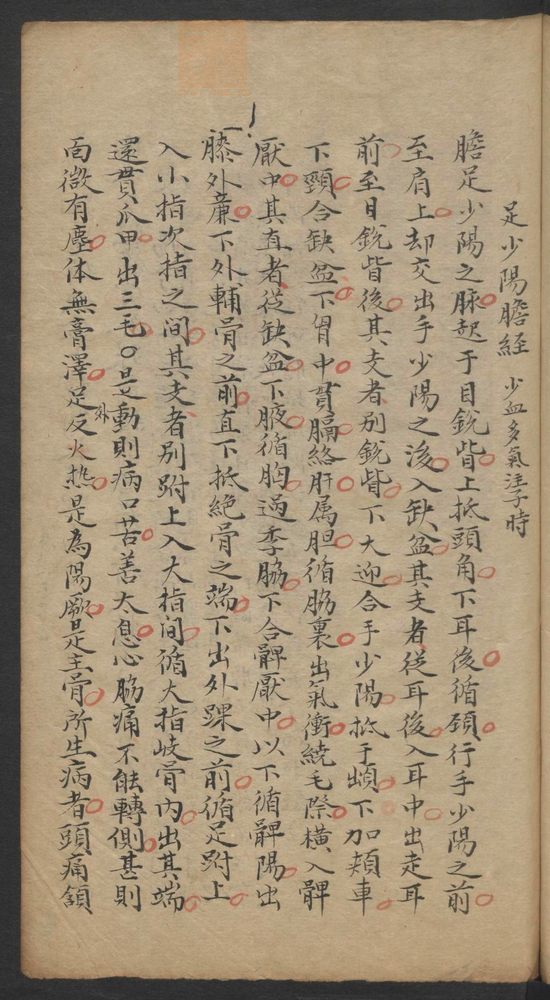 足少陽膽經 少血多氣注子時
膽足少陽之脉起于目銳眥上抵頭角下耳後循頸行手少陽之前
至肩上却交出手少陽之後入缺盆其支者從耳後入耳中出走耳
前至目銳眥後其支者別銳眥下大迎合手少陽抵于䪼下加頰車
下頸合缺盆下胷中貫膈絡肝属胆循脇裏出氣衝繞毛際橫入髀
厭中其直者從缺盆下腋循胸過季脇下合髀厭中以下循髀陽出
膝外廉下外輔骨之前直下抵絕骨之端下出外踝之前循足跗上
入小指次指之間其支者別跗上入大指間循大指岐骨內出其端
還貫爪甲出三毛○是動則病口苦善太息心脇痛不能轉側甚則
靣微有塵体無膏澤足外反火热是為陽厥是主骨所生病者頭痛頷